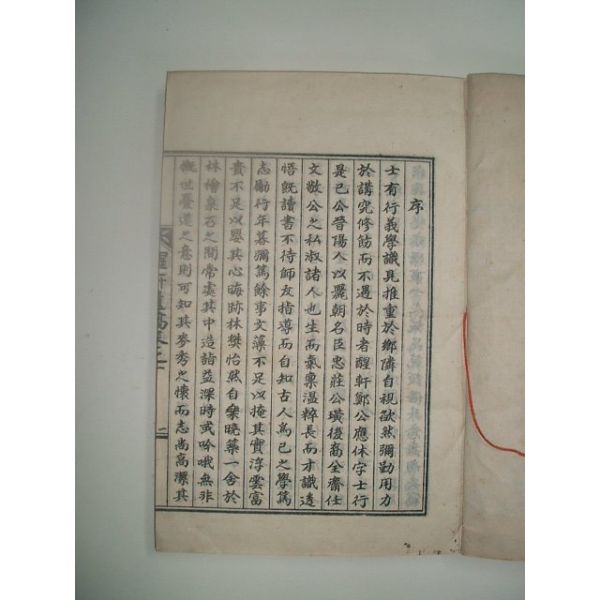 序
士有行義學識見推重於鄉隣自視欿然彌勤用力
於講究修飭而不遇於時者醒軒鄭公應休字士行
是已公晉陽人以麗朝名臣忠莊公璜後裔全齋任
文敬公之私淑諸人也生而氣稟溫粹長而才識透
悟旣讀書不待師友指導而自知古人爲己之學篤
志勵行年暮彌篤餘事文藻不足以掩其實浮雲富
貴不足以嬰其心晦跡林樊怡然自樂晩築一舍於
林檜泉石之間常處其中造詣益深時或吟哦無非
慨世憂道之意則可知其麥秀之懷而志尚高潔其
醒軒遺稿卷之一
二